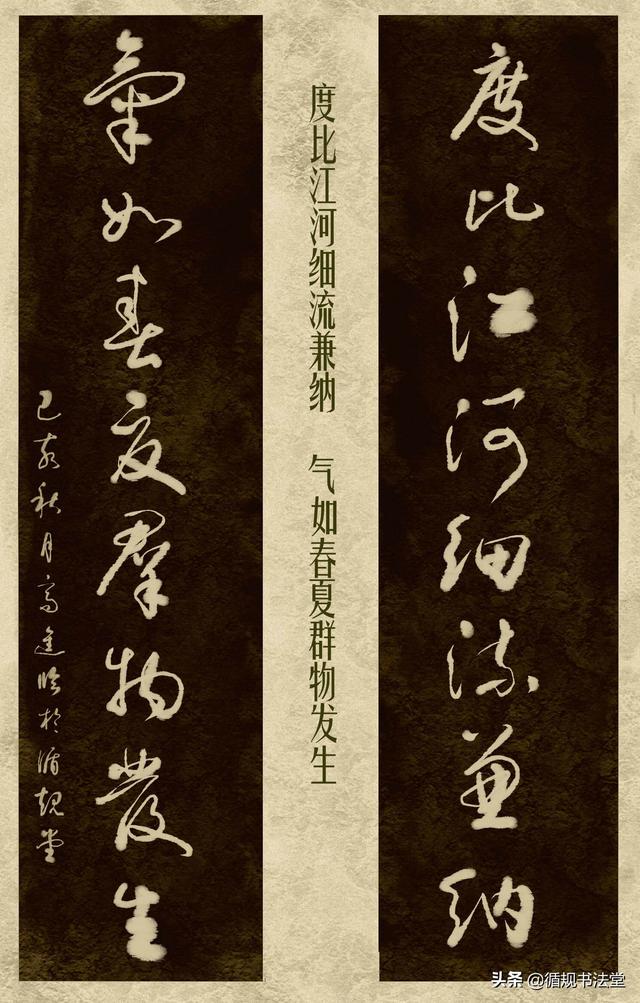 度比江河细流兼纳
氣如春夏群物發生
己亥秋月高進臨於循規堂
度比江河细流兼纳 气如春夏群物发生
头条 @循规书法堂